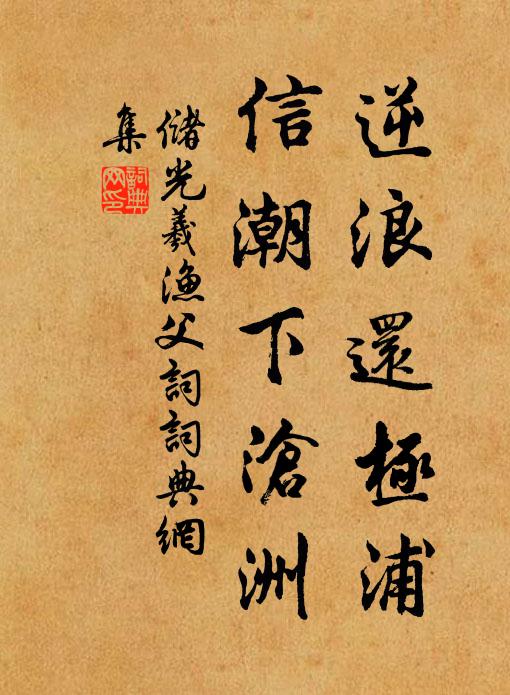 逆浪還極浦
信潮下滄洲
儲光羲漁父詞詞典網
集
詞典網印